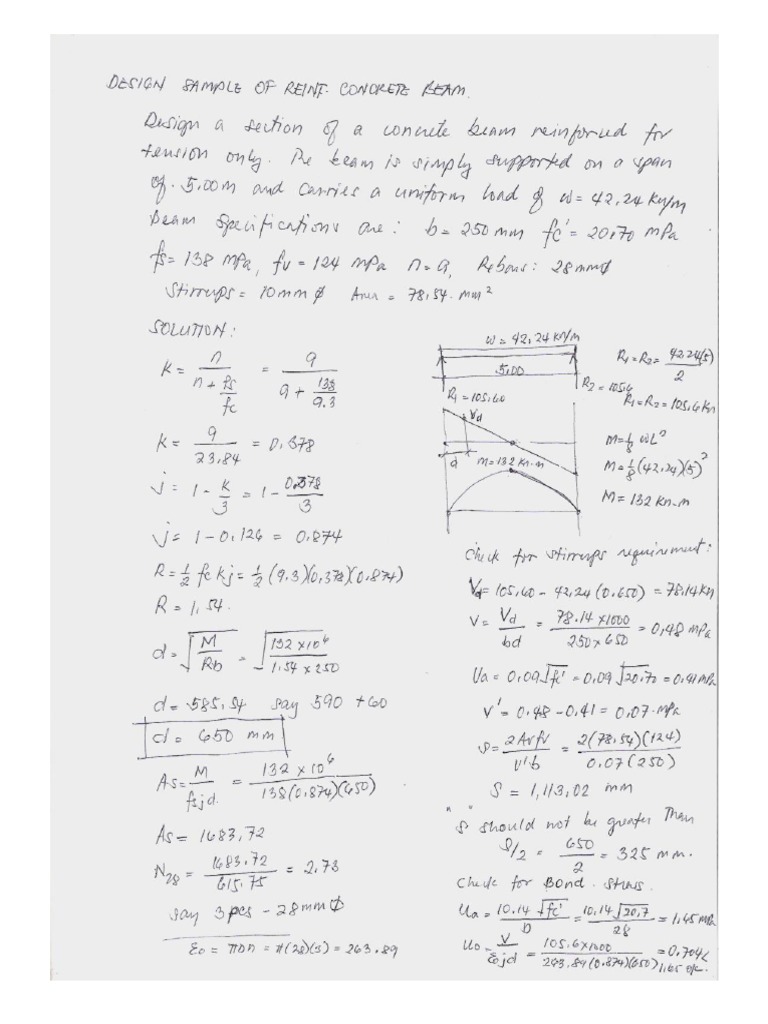 DESIGN SAMPLE OF REINF. CONCRETE BEAM.
Design a section of a concrete beam reinforced for
tension only. The beam is simply supported on a span
of 5.00m and carries a uniform load of w = 42.24 KN/m
Beam specifications are: b = 250 mm fc' = 20.70 mPa
fs = 138 MPa, fv = 124 mPa n = 9, Rebars: 28mmφ
Stirrups = 10mm φ Area = 78.54 mm²
SOLUTION:
K = n / (n + fs/fc) = 9 / (9 + 138/9.3)
K = 9/23.84 = 0.378
j = 1 - K/3 = 1 - 0.378/3
j = 1 - 0.126 = 0.874
R = ½ fc K j = ½ (9.3)(0.378)(0.874)
R = 1.54.
d = √(M/Rb) = √(132 x 10⁶ / 1.54 x 250)
d = 585.54 say 590 + 60
d = 650 mm
As = M / fsjd = 132 x 10⁶ / 138(0.874)(650)
As = 1683.72
N28 = 1683.72 / 615.75 = 2.73
say 3 pcs - 28mm φ
Eo = πDn = π(28)(3) = 263.89
w = 42.24 KN/m
5.00
R1 = 105.60
R2 = 105.6
R1 = R2 = 42.24(5) / 2
R1 = R2 = 105.6 KN
Vd
d
M = 132 KN-m
M = ⅛ WL²
M = ⅛ (42.24)(5)²
M = 132 KN-m
Check for stirrups requirement:
Vd = 105.60 - 42.24 (0.650) = 78.14 KN
V = Vd / bd = 78.14 x 1000 / 250 x 650 = 0.48 mPa
Ua = 0.09 √fc' = 0.09 √20.70 = 0.41 mPa
V' = 0.48 - 0.41 = 0.07 mPa
S = 2Avfv / v'b = 2(78.54)(124) / 0.07 (250)
S = 1,113.02 mm
" S should not be greater than "
d/2 = 650 / 2 = 325 mm.
Check for Bond stress.
Ua = 10.14 √fc' / D = 10.14 √20.7 / 28 = 1.65 mPa
Uo = V / Eojd = 105.6 x 1000 / 263.89 (0.874)(650) = 0.704 <
1.65 o/c.